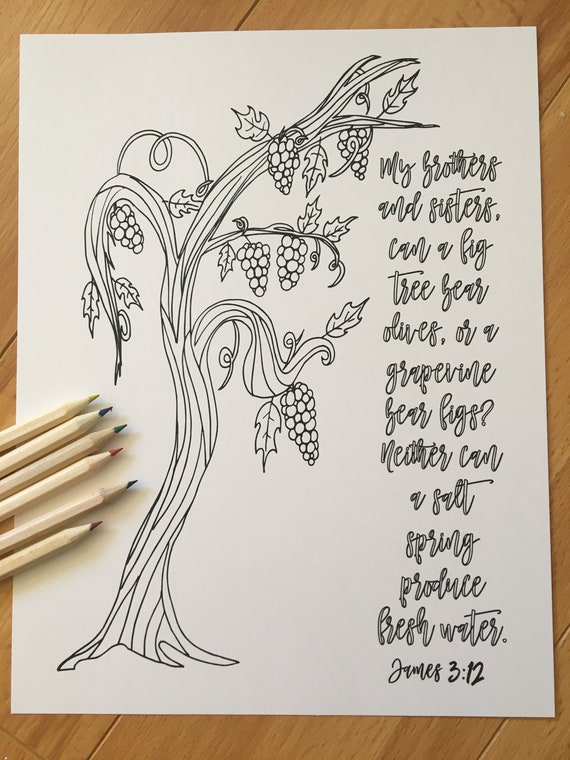 My brothers
and sisters,
can a fig
tree bear
olives, or a
grapevine
bear figs?
Neither can
a salt
spring
produce
fresh water.
James 3:12